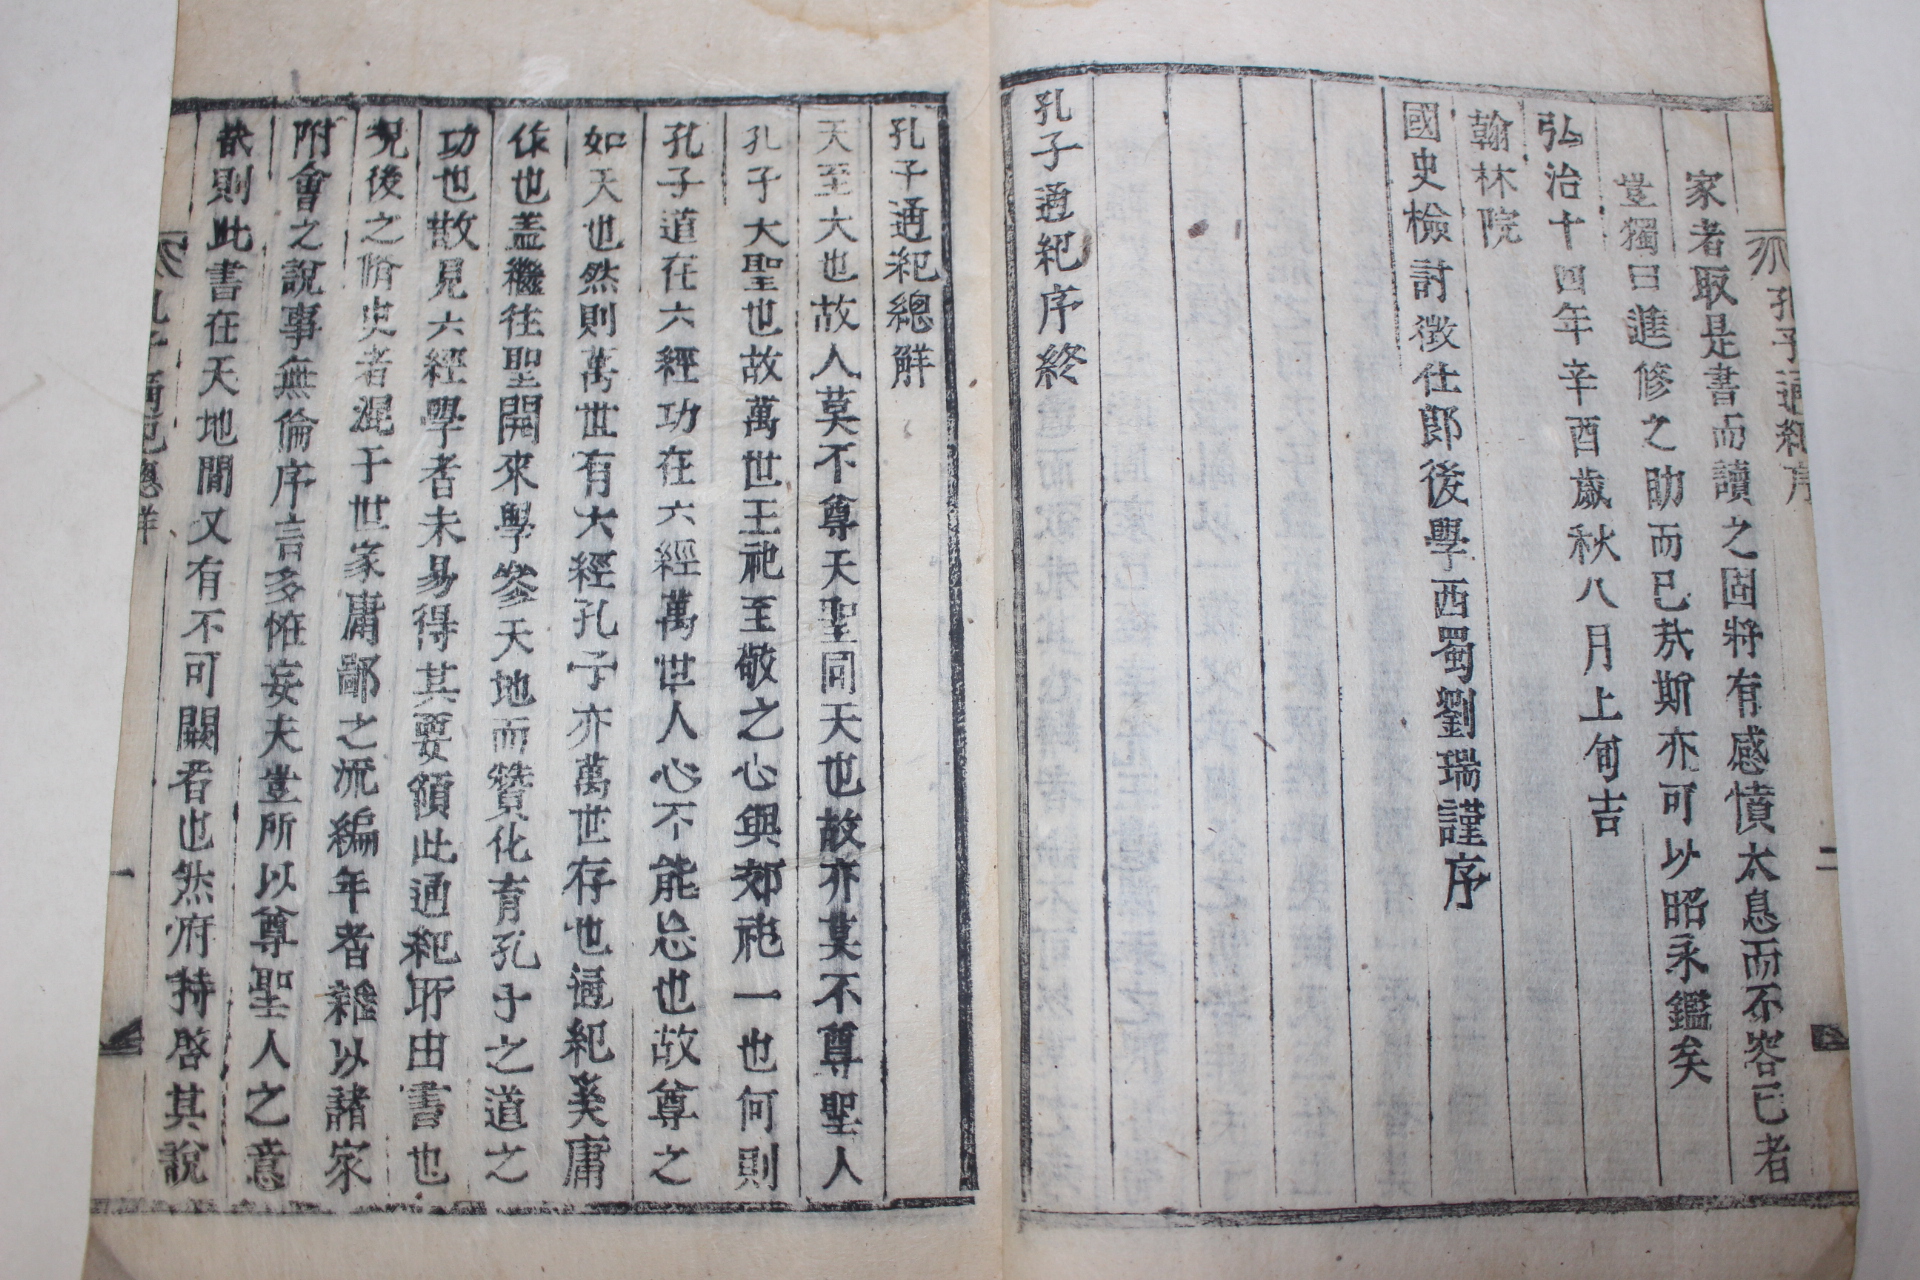 孔子通紀序
二
家者取是書而讀之固將有感憤太息而不容已者
豈獨曰進修之助而已㢤斯亦可以昭永鑑矣
弘治十四年辛酉歲秋八月上旬吉
翰林院
國史檢討徵仕郎後學西蜀劉瑞謹序
孔子通紀序終
孔子通紀總觧
天至大也故人莫不尊天聖同天也故亦莫不尊聖人
孔子大聖也故萬世王祀至敬之心與郊祀一也何則
孔子道在六經功在六經萬世人心不能忘也故尊之
如天也然則萬世有六經孔子亦萬世存也通紀奚庸
作也盖繼往聖開來學參天地而贊化育孔子之道之
功也散見六經學者未易得其要領此通紀所由書也
況後之脩史者混于世家庸鄙之流編年者雜以諸家
附會之說事無倫序言多恠妄夫豈所以尊聖人之意
㢤則此書在天地間又有不可闕者也然府持啓其說
孔子通紀總觧
一